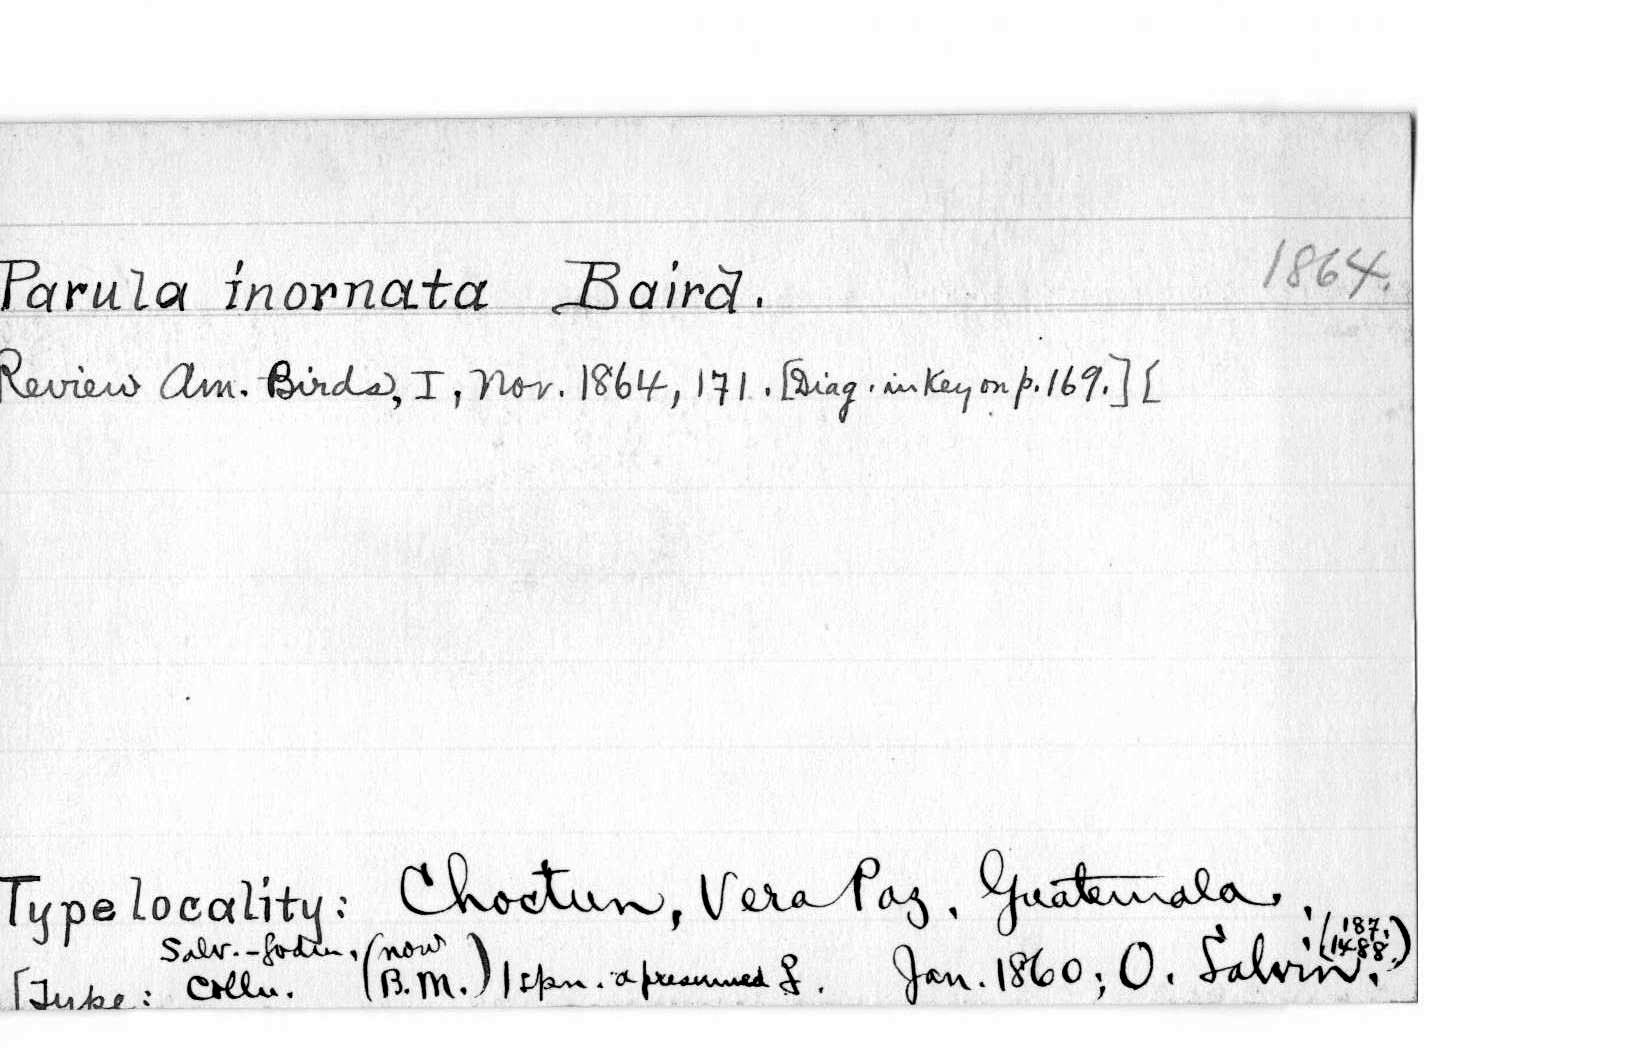 1864.
Parula inornata Baird.
Review Am. Birds, I, Nov. 1864, 171. [Diag. in Key on p. 169.] [
Type locality: Choctun, Vera Paz, Guatemala.
Salv.-Godm. (now (187.
[Type: Colln. (B.M.) 1 spn. a presumed ♀. Jan. 1860; O. Salvin. 1488.)